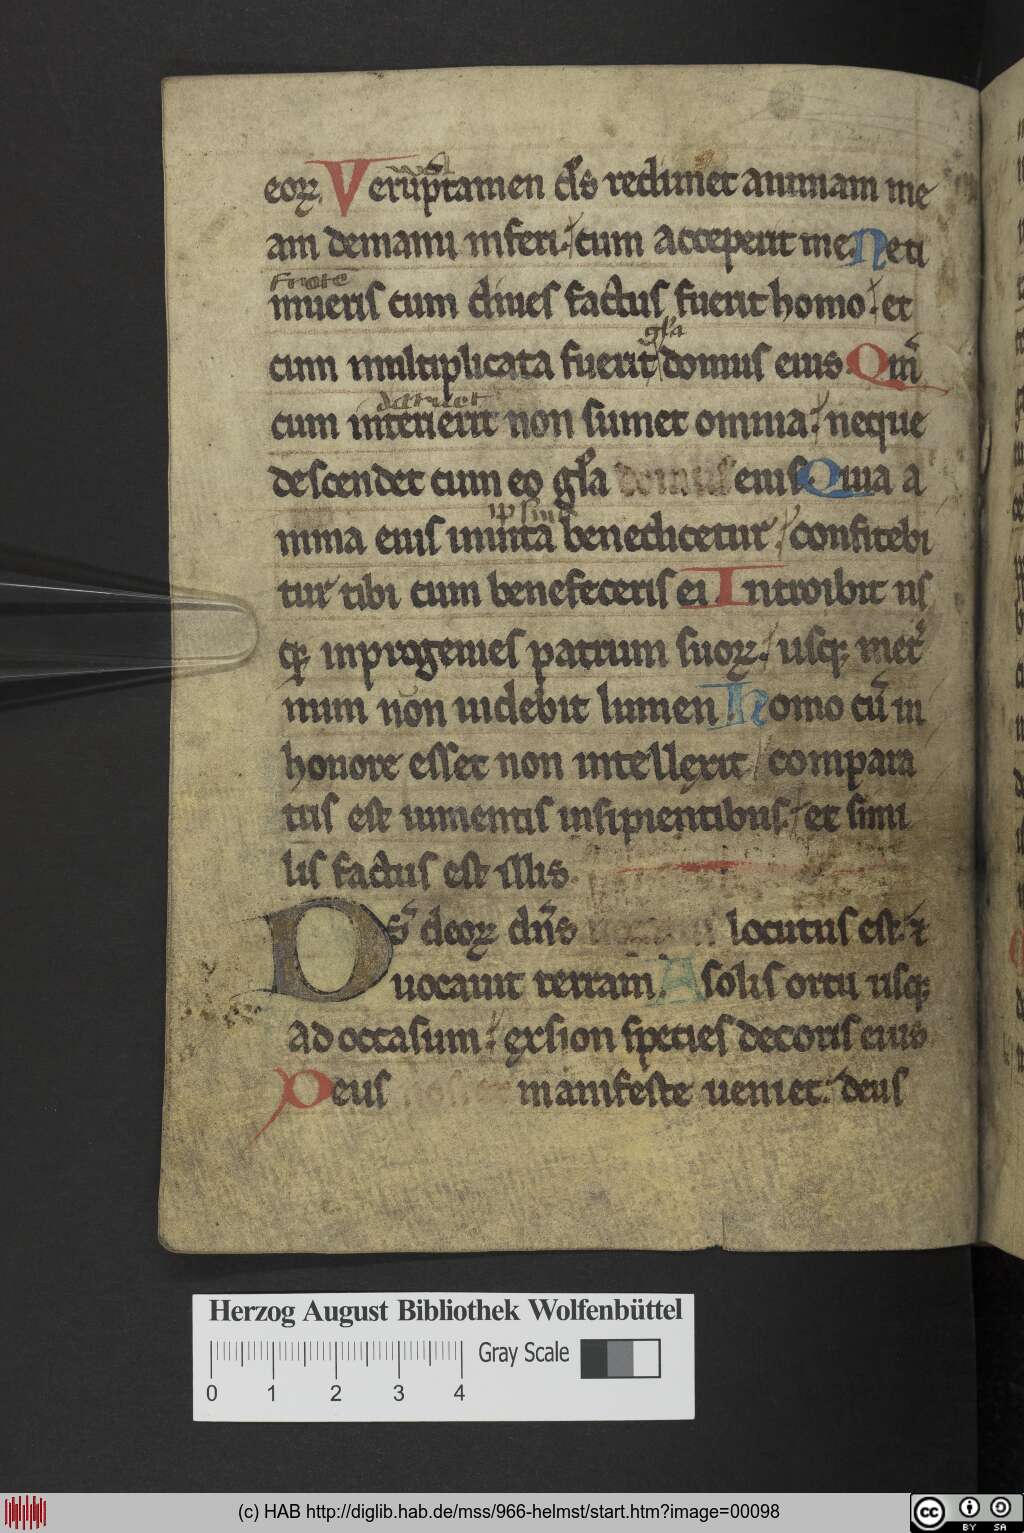 eoꝝ. Veruptamen ds redimet animam me
am demanu inferi. cum acceperit me. Neti
mueris cum diues factus fuerit homo. et
gla
cum multiplicata fuerit domus eius. Qm̄
cum interierit non sumet omnia. neque
descendet cum eo gla domus eius. Quia a
ipsius
nima eius inuita benedicetur. confitebi
tur tibi cum benefeceris ei. Introibit us
qꝫ inprogenies patrum suoꝝ. usqꝫ inet
num non uidebit lumen. Homo cū in
honore esset non intellexit. compara
tus est iumentis insipientibus. et simi
lis factus est illis.
Ds deoꝝ dn̄s locutus est. &
uocauit terram. A solis ortu usqꝫ
ad occasum. exsion species decoris eius
Deus noster manifeste ueniet. deus
Herzog August Bibliothek Wolfenbüttel
Gray Scale
0 1 2 3 4
(c) HAB http://diglib.hab.de/mss/966-helmst/start.htm?image=00098
cc BY SA